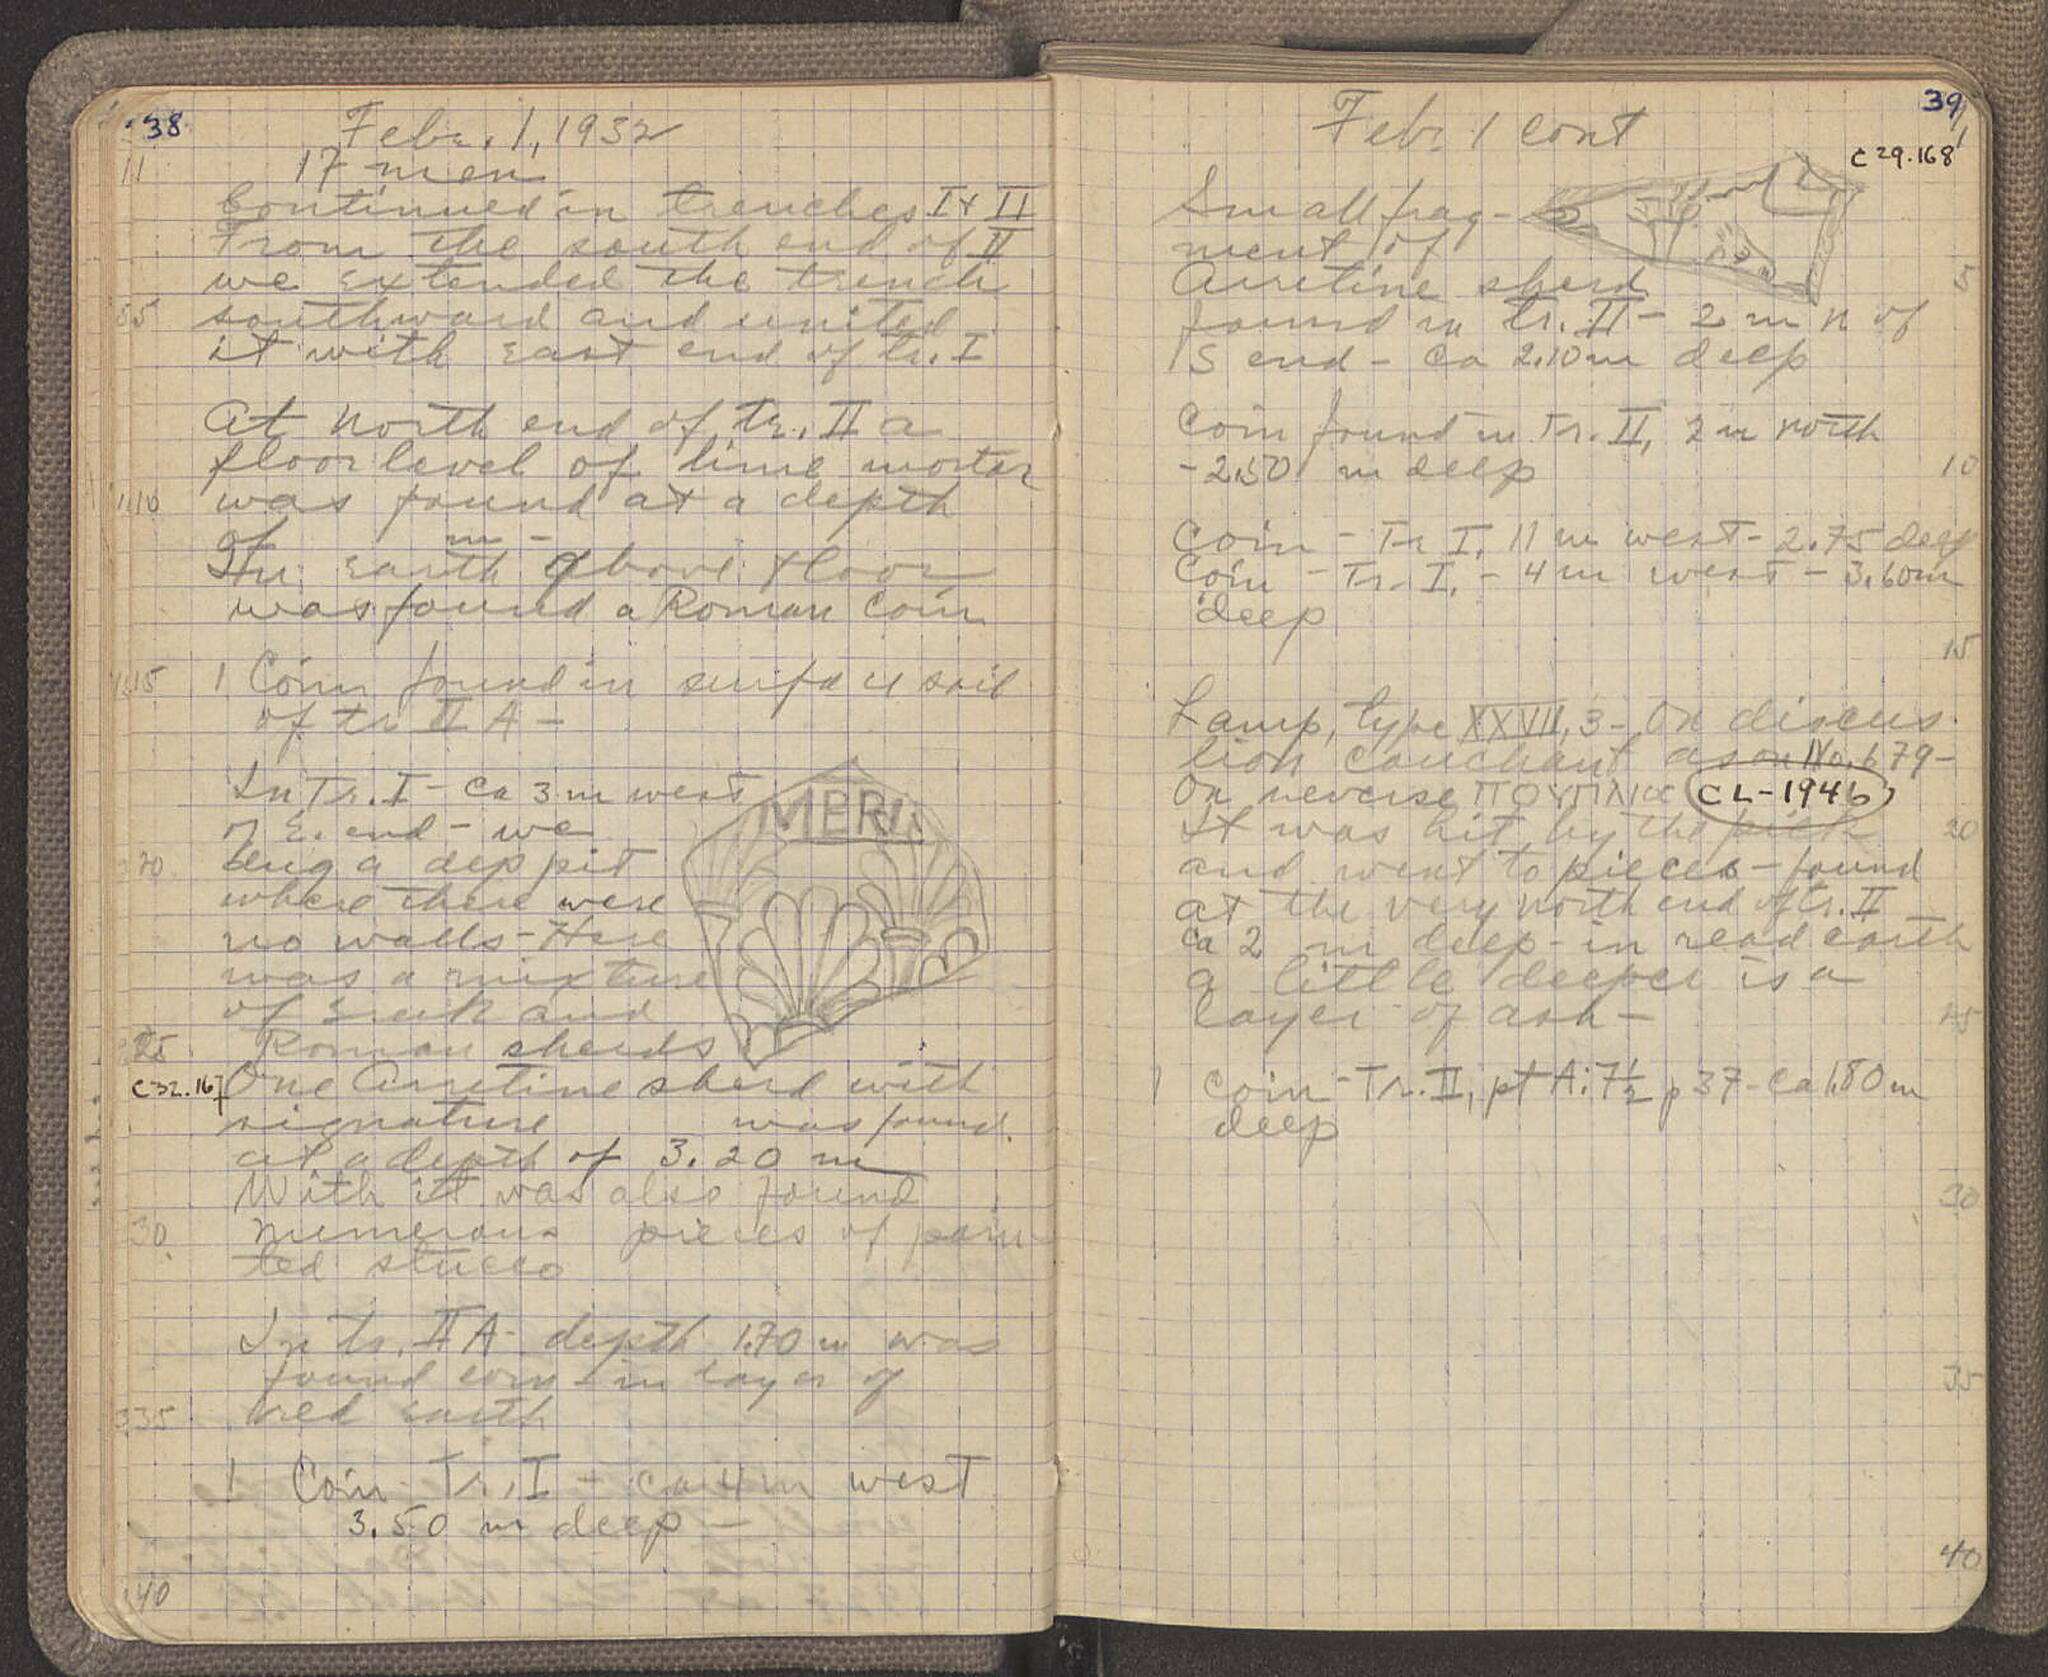 38
Febr. 1, 1932
1
17 men
Continued in trenches I & II
From the south end of II
we extended the trench
5
southward and united
it with East end of tr. I
At North end of tr. II a
floor level of lime mortar
10
was found at a depth
of m -
In Earth above floor
was found a Roman Coin
15
1 Coin found in surface soil
of tr II A -
In Tr. I - Ca 3 m west
of E. end - we
MERI
20
dug a dep pit
where there were
no walls - Here
was a mixture
of Greek and
25
Roman sherds
C32.167
One Arretine sherd with
signature was found
at a depth of 3.20 m
With it was also found
30
numerous pieces of pain
ted stucco
In tr. II A - depth 1.70 m was
found coin - in layer of
35
red Earth
1 Coin - Tr. I - ca 4 m west
3.50 m deep -
40
39
Febr. 1 cont
1
C 29.168
Small frag-
ment of
Arretine sherd
5
found in tr. II - 2 m n of
S end - ca 2.10 m deep
Coin found in Tr. II, 2 m north
- 2.50 m deep
10
Coin - Tr I, 11 m west - 2.75 deep
Coin - Tr. I, - 4 m west - 3.60 m
deep
15
Lamp, type XXVII, 3 - On discus
lion couchant as on No. 679 -
On reverse ΠΟΥΠΛΙΟΥ CL-1946
It was hit by the pick
20
and went to pieces - found
at the very north end of tr. II
ca 2 m deep - in read earth
a little deeper is a
layer of ash -
25
1 Coin - Tr. II, pt A: 7½ p 37 - ca 1.80 m
deep
30
35
40